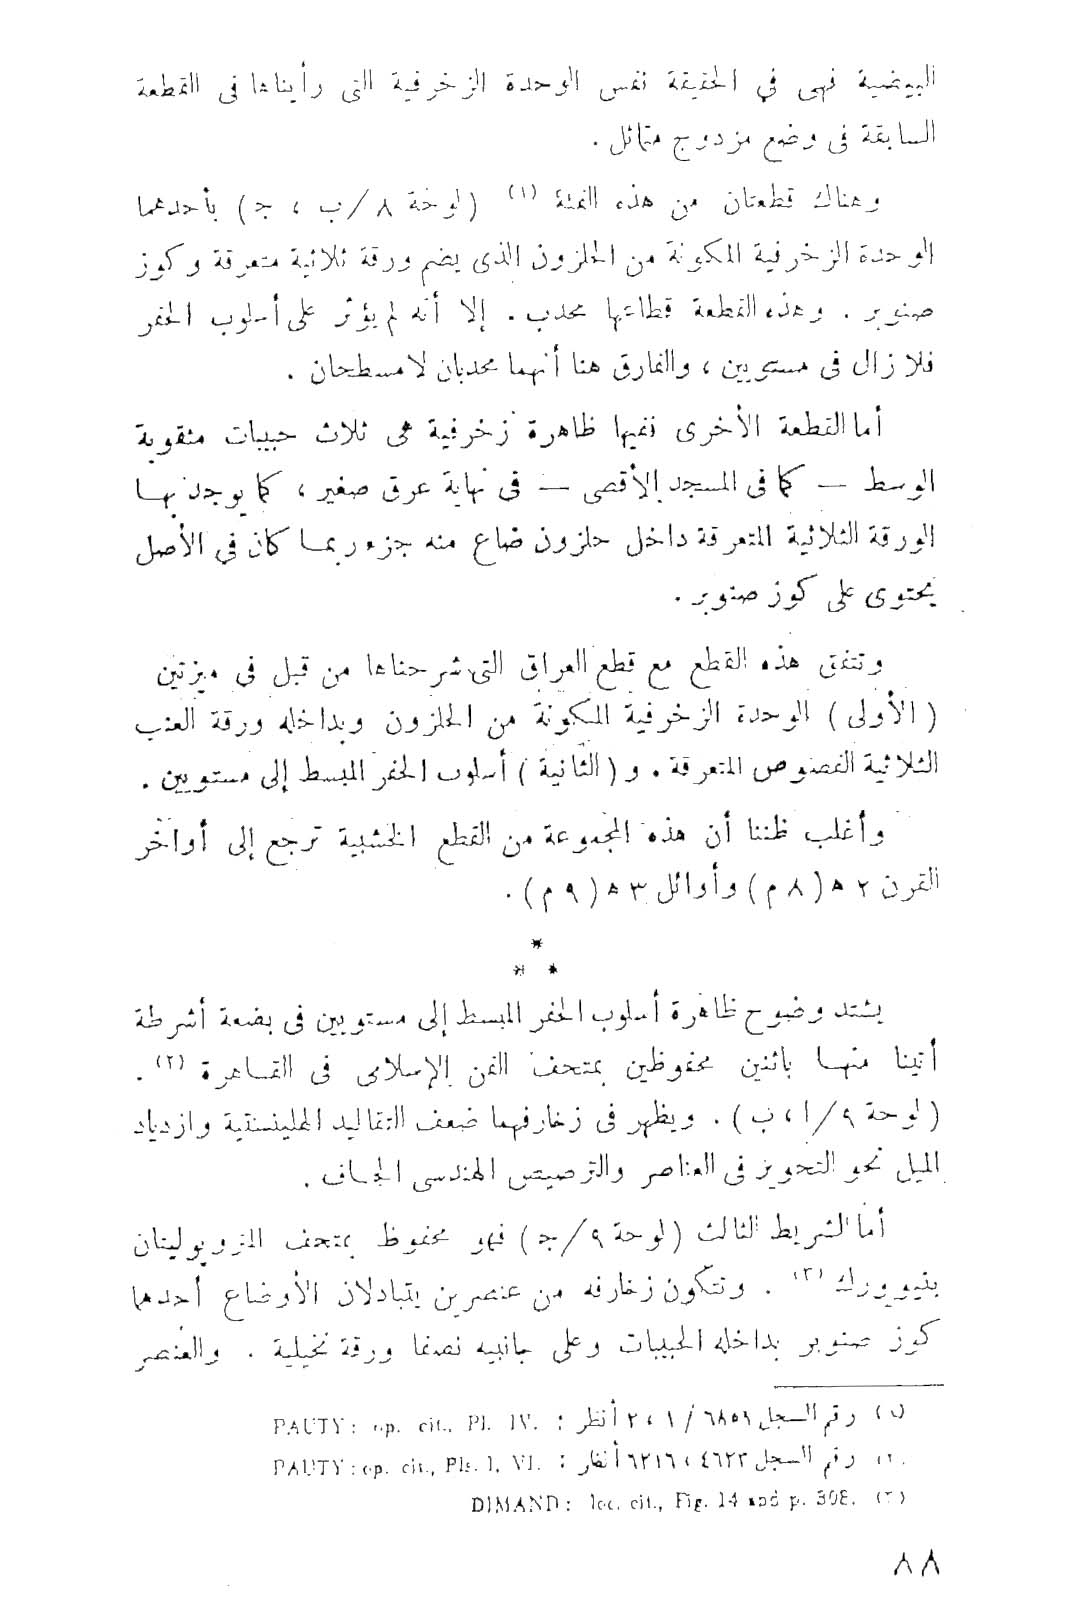 البيضية فهى في الحقيقة نفس الوحدة الزخرفية التى رأيناها فى القطعة
السابقة فى وضع مزدوج متماثل .
وهناك قطعتان من هذه الفئة (١) (لوحة ٨/ب ، ج) بأحدهما
الوحدة الزخرفية المكونة من الحلزون الذى يضم ورقة ثلاثية متعرقة وكوز
صنوبر . وهذه القطعة قطاعها محدب . إلا أنه لم يؤثر على أسلوب الحفر
فلا زال فى مستويين ، والفارق هنا أنهما محدبان لا مسطحان .
أما القطعة الأخرى ففيها ظاهرة زخرفية هى ثلاث حبيبات مثقوبة
الوسط — كما فى المسجد الأقصى — فى نهاية عرق صغير ، كما يوجد بها
الورقة الثلاثية المتعرقة داخل حلزون ضاع منه جزء ربما كان في الأصل
يحتوى على كوز صنوبر .
وتتفق هذه القطع مع قطع العراق التى شرحناها من قبل فى ميزتين
( الأولى ) الوحدة الزخرفية المكونة من الحلزون وبداخله ورقة العنب
الثلاثية الفصوص المتعرقة . و ( الثانية ) أسلوب الحفر المبسط إلى مستويين .
وأغلب ظننا أن هذه المجموعة من القطع الخشبية ترجع إلى أواخر
القرن ٢ ه ( ٨ م ) وأوائل ٣ ه ( ٩ م ) .
*
* *
يشتد وضوح ظاهرة أسلوب الحفر المبسط إلى مستويين فى بضعة أشرطة
أتينا منها باثنين محفوظين بمتحف الفن الإسلامى فى القاهرة (٢) .
( لوحة ٩/ا ، ب ) . ويظهر فى زخارفهما ضعف التقاليد الهلينستية وازدياد
الميل نحو التحوير فى العناصر والترصيص الهندسى الجاف .
أما الشريط الثالث ( لوحة ٩/ج ) فهو محفوظ بمتحف المتروبوليتان
بنيويورك (٣) . وتتكون زخارفه من عنصرين يتبادلان الأوضاع أحدهما
كوز صنوبر بداخله الحبيبات وعلى جانبيه نصفا ورقة نخيلية . والعنصر
(١) رقم السجل ٦٨٥٩ / ١ ، ٢ أنظر : PAUTY : op. cit., Pl. IV.
(٢) رقم السجل ٤٦٢٣ ، ٦٢١٦ أنظر : PAUTY : op. cit., Pls. I, VI.
(٣) DIMAND : loc. cit., Fig. 14 and p. 308.
٨٨